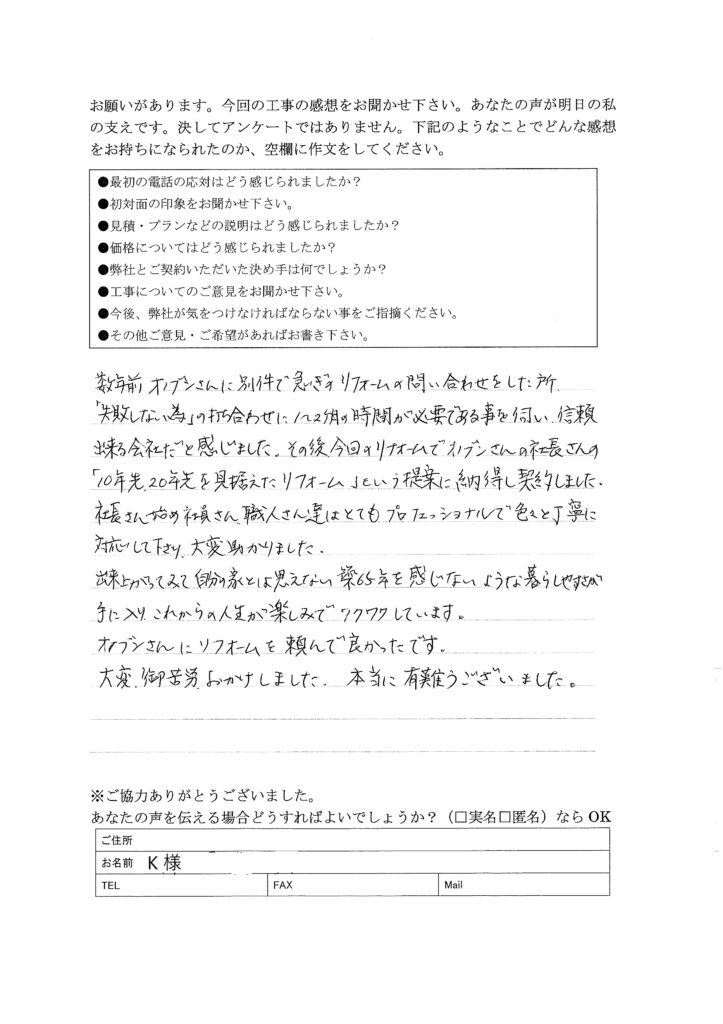 お願いがあります。今回の工事の感想をお聞かせ下さい。あなたの声が明日の私
の支えです。決してアンケートではありません。下記のようなことでどんな感想
をお持ちになられたのか、空欄に作文をしてください。
●最初の電話の応対はどう感じられましたか？
●初対面の印象をお聞かせ下さい。
●見積・プランなどの説明はどう感じられましたか？
●価格についてはどう感じられましたか？
●弊社とご契約いただいた決め手は何でしょうか？
●工事についてのご意見をお聞かせ下さい。
●今後、弊社が気をつけなければならない事をご指摘ください。
●その他ご意見・ご希望があればお書き下さい。
数年前 オブンさんに別件で急ぎのリフォームの問い合わせをした所
「失敗しない為」の打ち合わせに1〜2ヶ月の時間が必要である事を伺い、信頼
出来る会社だと感じました。その後今回のリフォームでオブンさんの社長さんの
「10年先、20年先を見据えたリフォーム」という提案に納得し契約しました。
社長さん始め社員さん、職人さん達はとてもプロフェッショナルで色々と丁寧に
対応して下さり、大変助かりました。
出来上がってみて自分の家とは思えない築65年を感じないような暮らしやすさが
手に入り、これからの人生が楽しみでワクワクしています。
オブンさんにリフォームを頼んで良かったです。
大変、御苦労おかけしました。 本当に有難うございました。
※ご協力ありがとうございました。
あなたの声を伝える場合どうすればよいでしょうか？（□実名□匿名）なら OK
ご住所
お名前 K 様
TEL FAX Mail